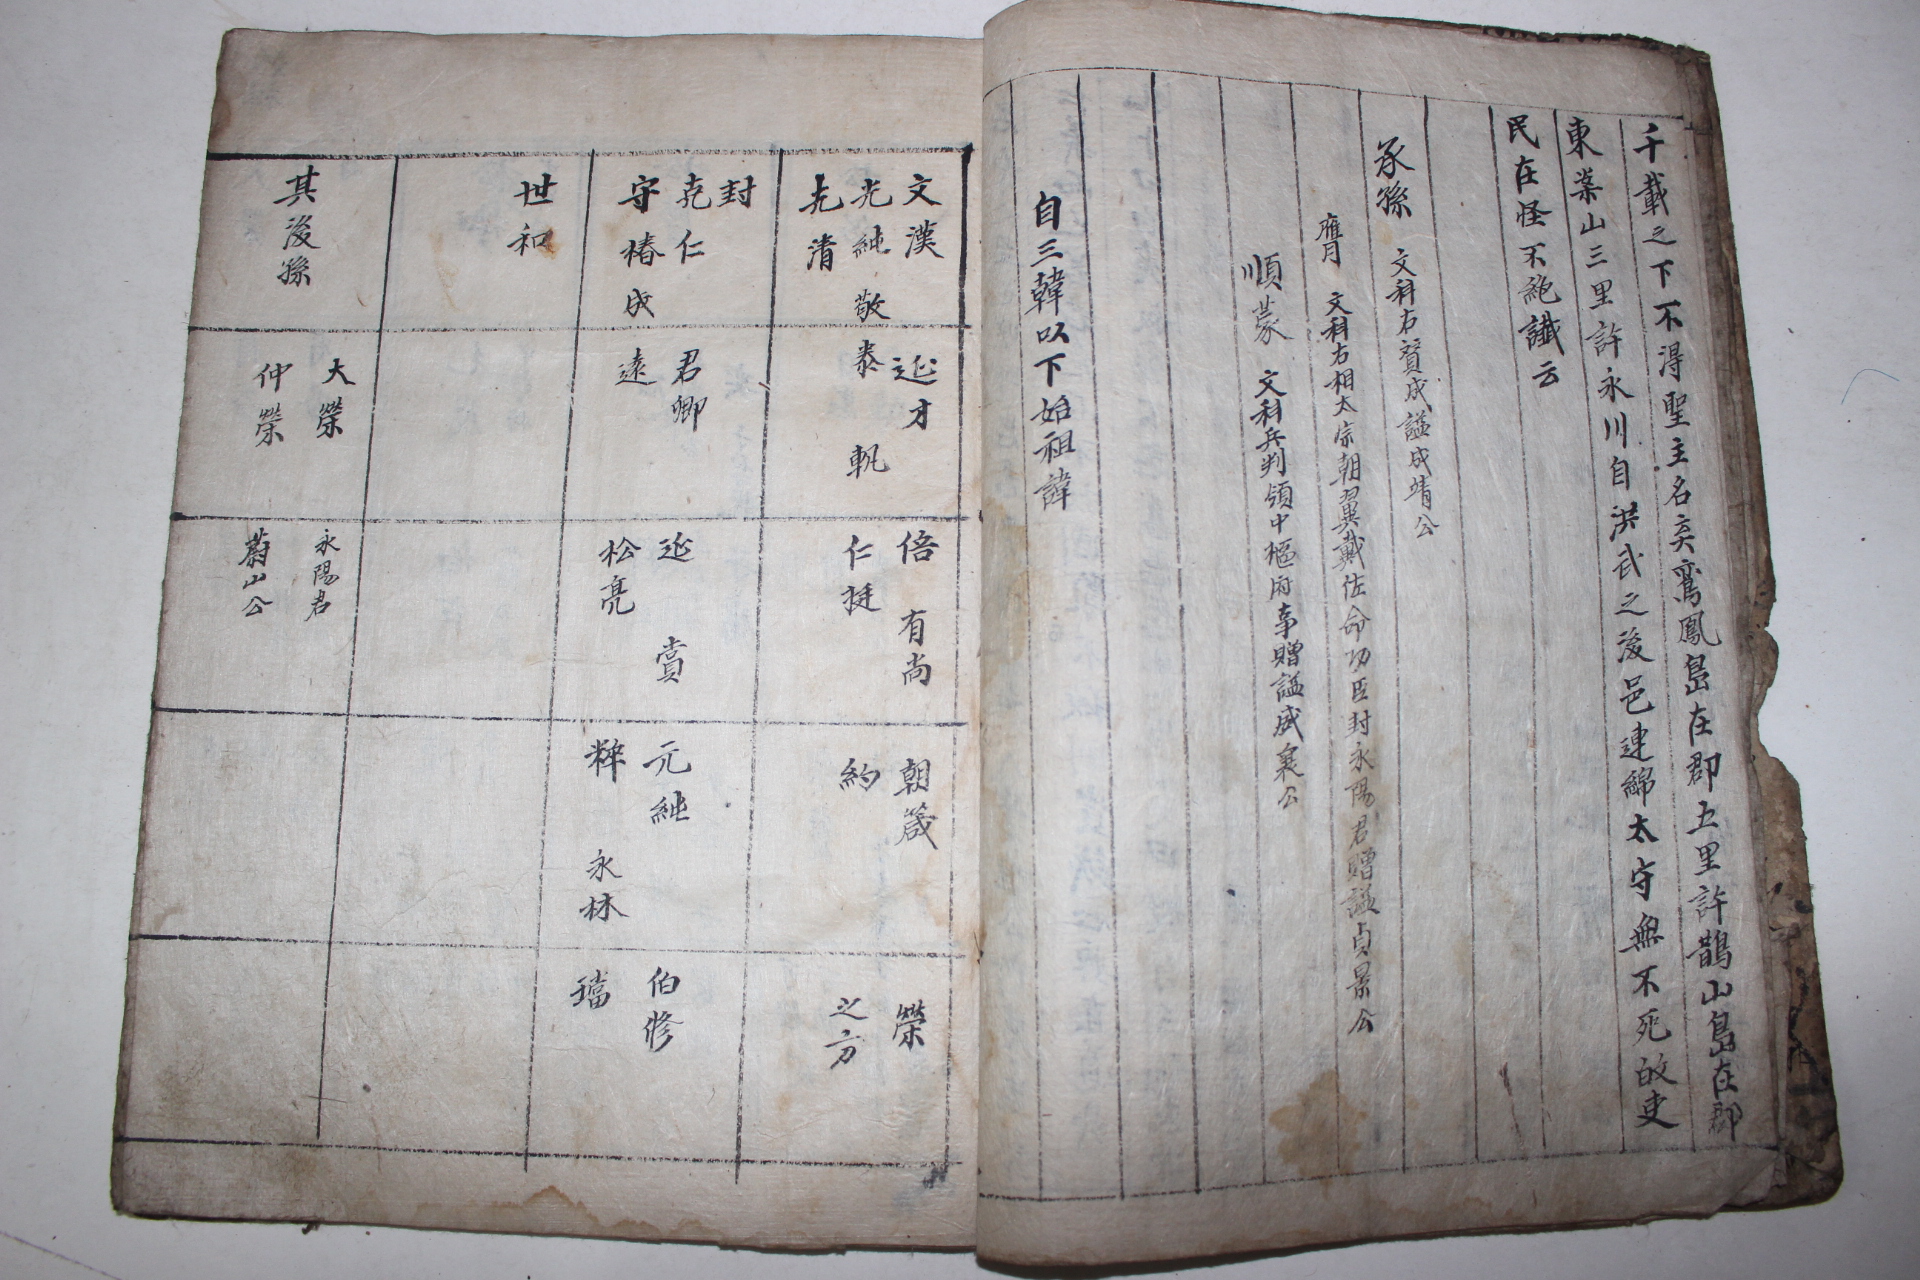 千載之下不得聖主名矣鸞鳳島在郡五里許鵲山島在郡
東業山三里許永川自洪武之後邑連綿太守無不死故吏
民在怪不絶讖云
承孫 文科右贊成諡成靖公
膺 文科右相太宗朝翼戴佐命功臣封永陽君贈諡貞景公
順蒙 文科兵判領中樞府事贈諡威襄公
自三韓以下始祖諱
文漢 延才 倍 有尚 朝箴 榮
光純 敬泰 軌 仁挺 約 之方
克清
封 君卿 延 賞 元純 伯修
克仁
守椿 成遠 松亮 粹 永林 璫
世和
其後孫 大榮 永陽君
仲榮 蔚山公